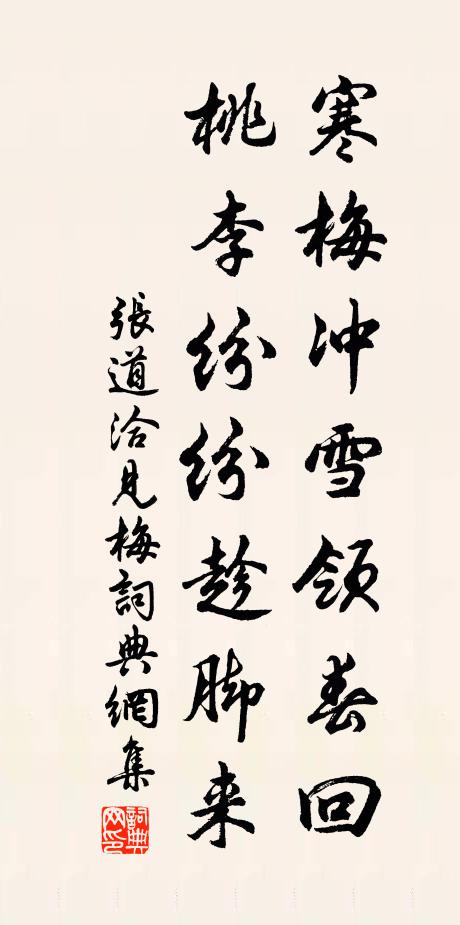 寒梅冲雪领春回
桃李纷纷趁脚来
張道洽見梅詞典網集
詞典网印